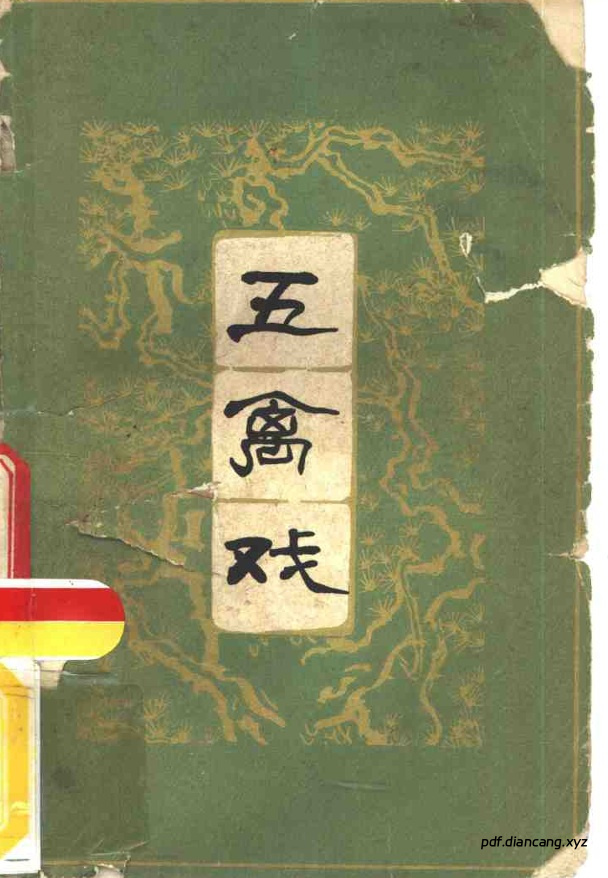 五
禽
戏
pdf.diancang.xyz